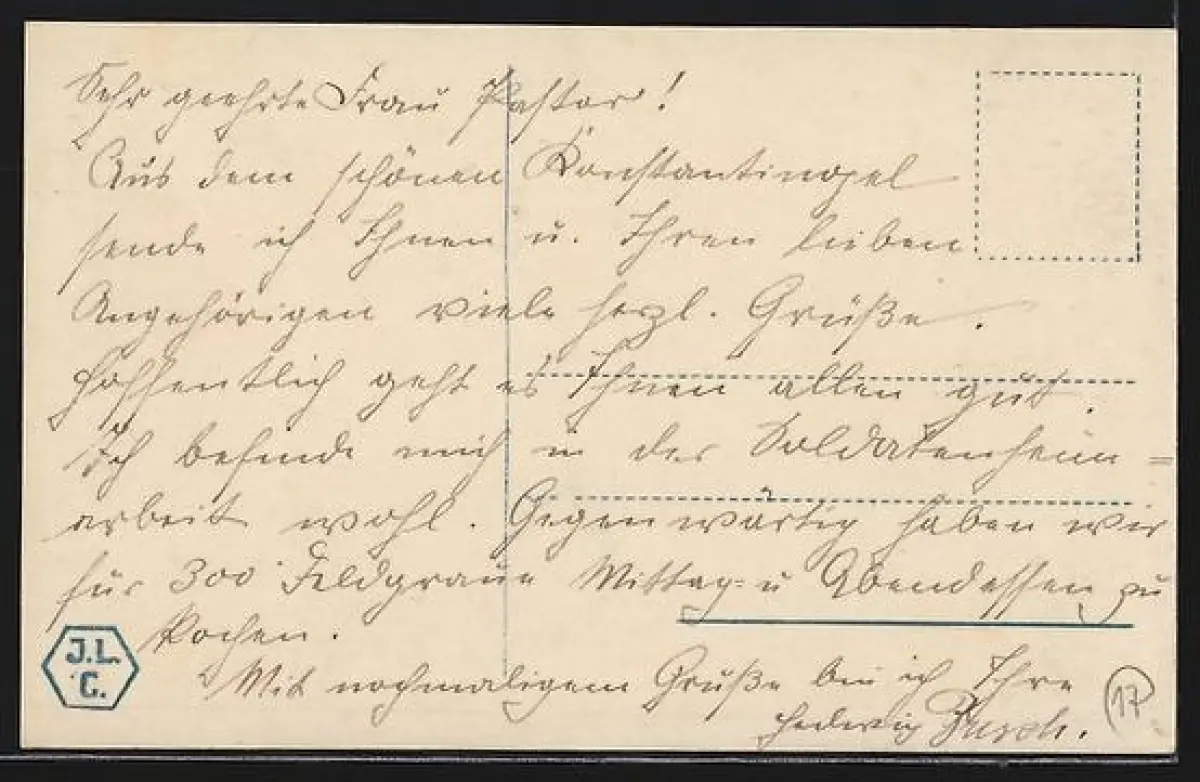 Sehr geehrte Frau Pastor!
Aus dem schönen Konstantinopel
sende ich Ihnen u. Ihren lieben
Angehörigen viele herzl. Grüße.
Hoffentlich geht es Ihnen allen gut.
Ich befinde mich in der Soldatenheim=
arbeit wohl. Gegenwärtig haben wir
für 300 Feldgraue Mittag- u Abendessen zu
kochen.
Mit nochmaligem Gruße bin ich Ihre
Hedwig
J.L.
C.
17